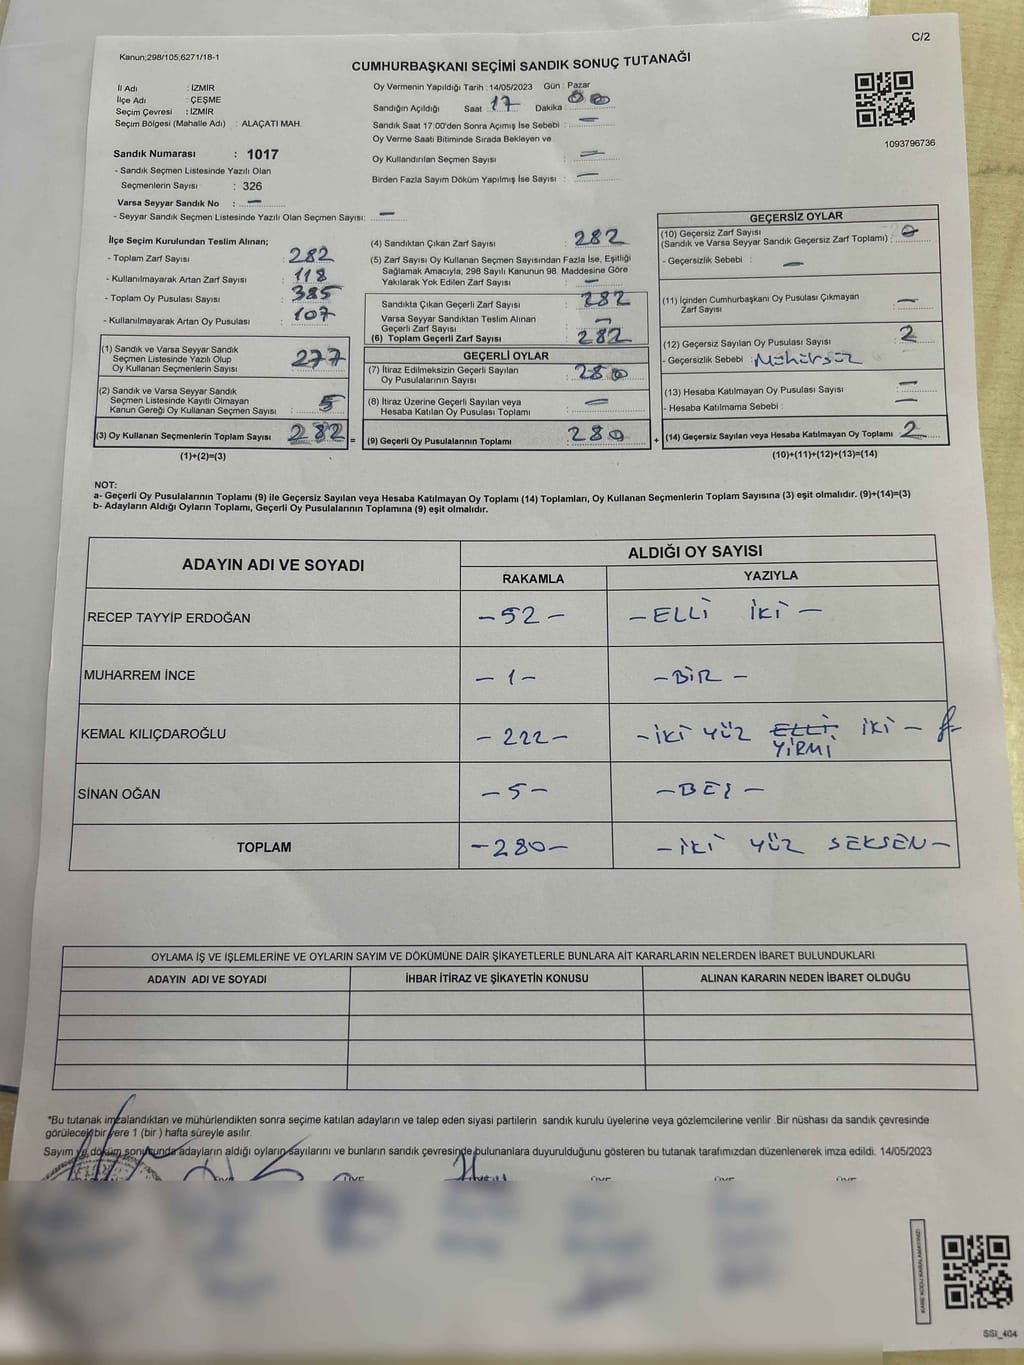 C/2
Kanun;298/105;6271/18-1
CUMHURBAŞKANI SEÇİMİ SANDIK SONUÇ TUTANAĞI
İl Adı : İZMİR
İlçe Adı : ÇEŞME
Seçim Çevresi : İZMİR
Seçim Bölgesi (Mahalle Adı) : ALAÇATI MAH.
Sandık Numarası : 1017
- Sandık Seçmen Listesinde Yazılı Olan
Seçmenlerin Sayısı : 326
Varsa Seyyar Sandık No : —
- Seyyar Sandık Seçmen Listesinde Yazılı Olan Seçmen Sayısı: —
Oy Vermenin Yapıldığı Tarih : 14/05/2023 Gün : Pazar
Sandığın Açıldığı Saat : 17 Dakika : 00
Sandık Saat 17:00'den Sonra Açımış İse Sebebi : —
Oy Verme Saati Bitiminde Sırada Bekleyen ve
Oy Kullandırılan Seçmen Sayısı : —
Birden Fazla Sayım Döküm Yapılmış İse Sayısı : —
1093796736
İlçe Seçim Kurulundan Teslim Alınan;
- Toplam Zarf Sayısı : 282
- Kullanılmayarak Artan Zarf Sayısı : 118
- Toplam Oy Pusulası Sayısı : 385
- Kullanılmayarak Artan Oy Pusulası : 107
(1) Sandık ve Varsa Seyyar Sandık
Seçmen Listesinde Yazılı Olup
Oy Kullanan Seçmenlerin Sayısı : 277
(2) Sandık ve Varsa Seyyar Sandık
Seçmen Listesinde Kayıtlı Olmayan
Kanun Gereği Oy Kullanan Seçmen Sayısı : 5
(3) Oy Kullanan Seçmenlerin Toplam Sayısı : 282 =
(1)+(2)=(3)
(4) Sandıktan Çıkan Zarf Sayısı : 282
(5) Zarf Sayısı Oy Kullanan Seçmen Sayısından Fazla İse, Eşitliği
Sağlamak Amacıyla, 298 Sayılı Kanunun 98. Maddesine Göre
Yakılarak Yok Edilen Zarf Sayısı : —
Sandıkta Çıkan Geçerli Zarf Sayısı : 282
Varsa Seyyar Sandıktan Teslim Alınan
Geçerli Zarf Sayısı : —
(6) Toplam Geçerli Zarf Sayısı : 282
GEÇERLİ OYLAR
(7) İtiraz Edilmeksizin Geçerli Sayılan
Oy Pusulalarının Sayısı : 280
(8) İtiraz Üzerine Geçerli Sayılan veya
Hesaba Katılan Oy Pusulası Toplamı : —
(9) Geçerli Oy Pusulalarının Toplamı : 280 +
GEÇERSİZ OYLAR
(10) Geçersiz Zarf Sayısı
(Sandık ve Varsa Seyyar Sandık Geçersiz Zarf Toplamı) : 0
- Geçersizlik Sebebi : —
(11) İçinden Cumhurbaşkanı Oy Pusulası Çıkmayan
Zarf Sayısı : —
(12) Geçersiz Sayılan Oy Pusulası Sayısı : 2
- Geçersizlik Sebebi : Mühürsüz
(13) Hesaba Katılmayan Oy Pusulası Sayısı : —
- Hesaba Katılmama Sebebi : —
(14) Geçersiz Sayılan veya Hesaba Katılmayan Oy Toplamı : 2
(10)+(11)+(12)+(13)=(14)
NOT:
a- Geçerli Oy Pusulalarının Toplamı (9) ile Geçersiz Sayılan veya Hesaba Katılmayan Oy Toplamı (14) Toplamları, Oy Kullanan Seçmenlerin Toplam Sayısına (3) eşit olmalıdır. (9)+(14)=(3)
b- Adayların Aldığı Oyların Toplamı, Geçerli Oy Pusulalarının Toplamına (9) eşit olmalıdır.
ADAYIN ADI VE SOYADI
ALDIĞI OY SAYISI
RAKAMLA YAZIYLA
RECEP TAYYİP ERDOĞAN -52- -ELLİ İKİ-
MUHARREM İNCE -1- -BİR-
KEMAL KILIÇDAROĞLU -222- -İKİ YÜZ ELLİ İKİ-
YİRMİ
SİNAN OĞAN -5- -BEŞ-
TOPLAM -280- -İKİ YÜZ SEKSEN-
OYLAMA İŞ VE İŞLEMLERİNE VE OYLARIN SAYIM VE DÖKÜMÜNE DAİR ŞİKAYETLERLE BUNLARA AİT KARARLARIN NELERDEN İBARET BULUNDUKLARI
ADAYIN ADI VE SOYADI İHBAR İTİRAZ VE ŞİKAYETİN KONUSU ALINAN KARARIN NEDEN İBARET OLDUĞU
*Bu tutanak imzalandıktan ve mühürlendikten sonra seçime katılan adayların ve talep eden siyasi partilerin sandık kurulu üyelerine veya gözlemcilerine verilir. Bir nüshası da sandık çevresinde
görülecek bir yere 1 (bir ) hafta süreyle asılır.
Sayım ve döküm sonucunda adayların aldığı oyların sayılarını ve bunların sandık çevresinde bulunanlara duyurulduğunu gösteren bu tutanak tarafımızdan düzenlenerek imza edildi. 14/05/2023
KARE KODU KARALAMAYINIZ!
SSI_404